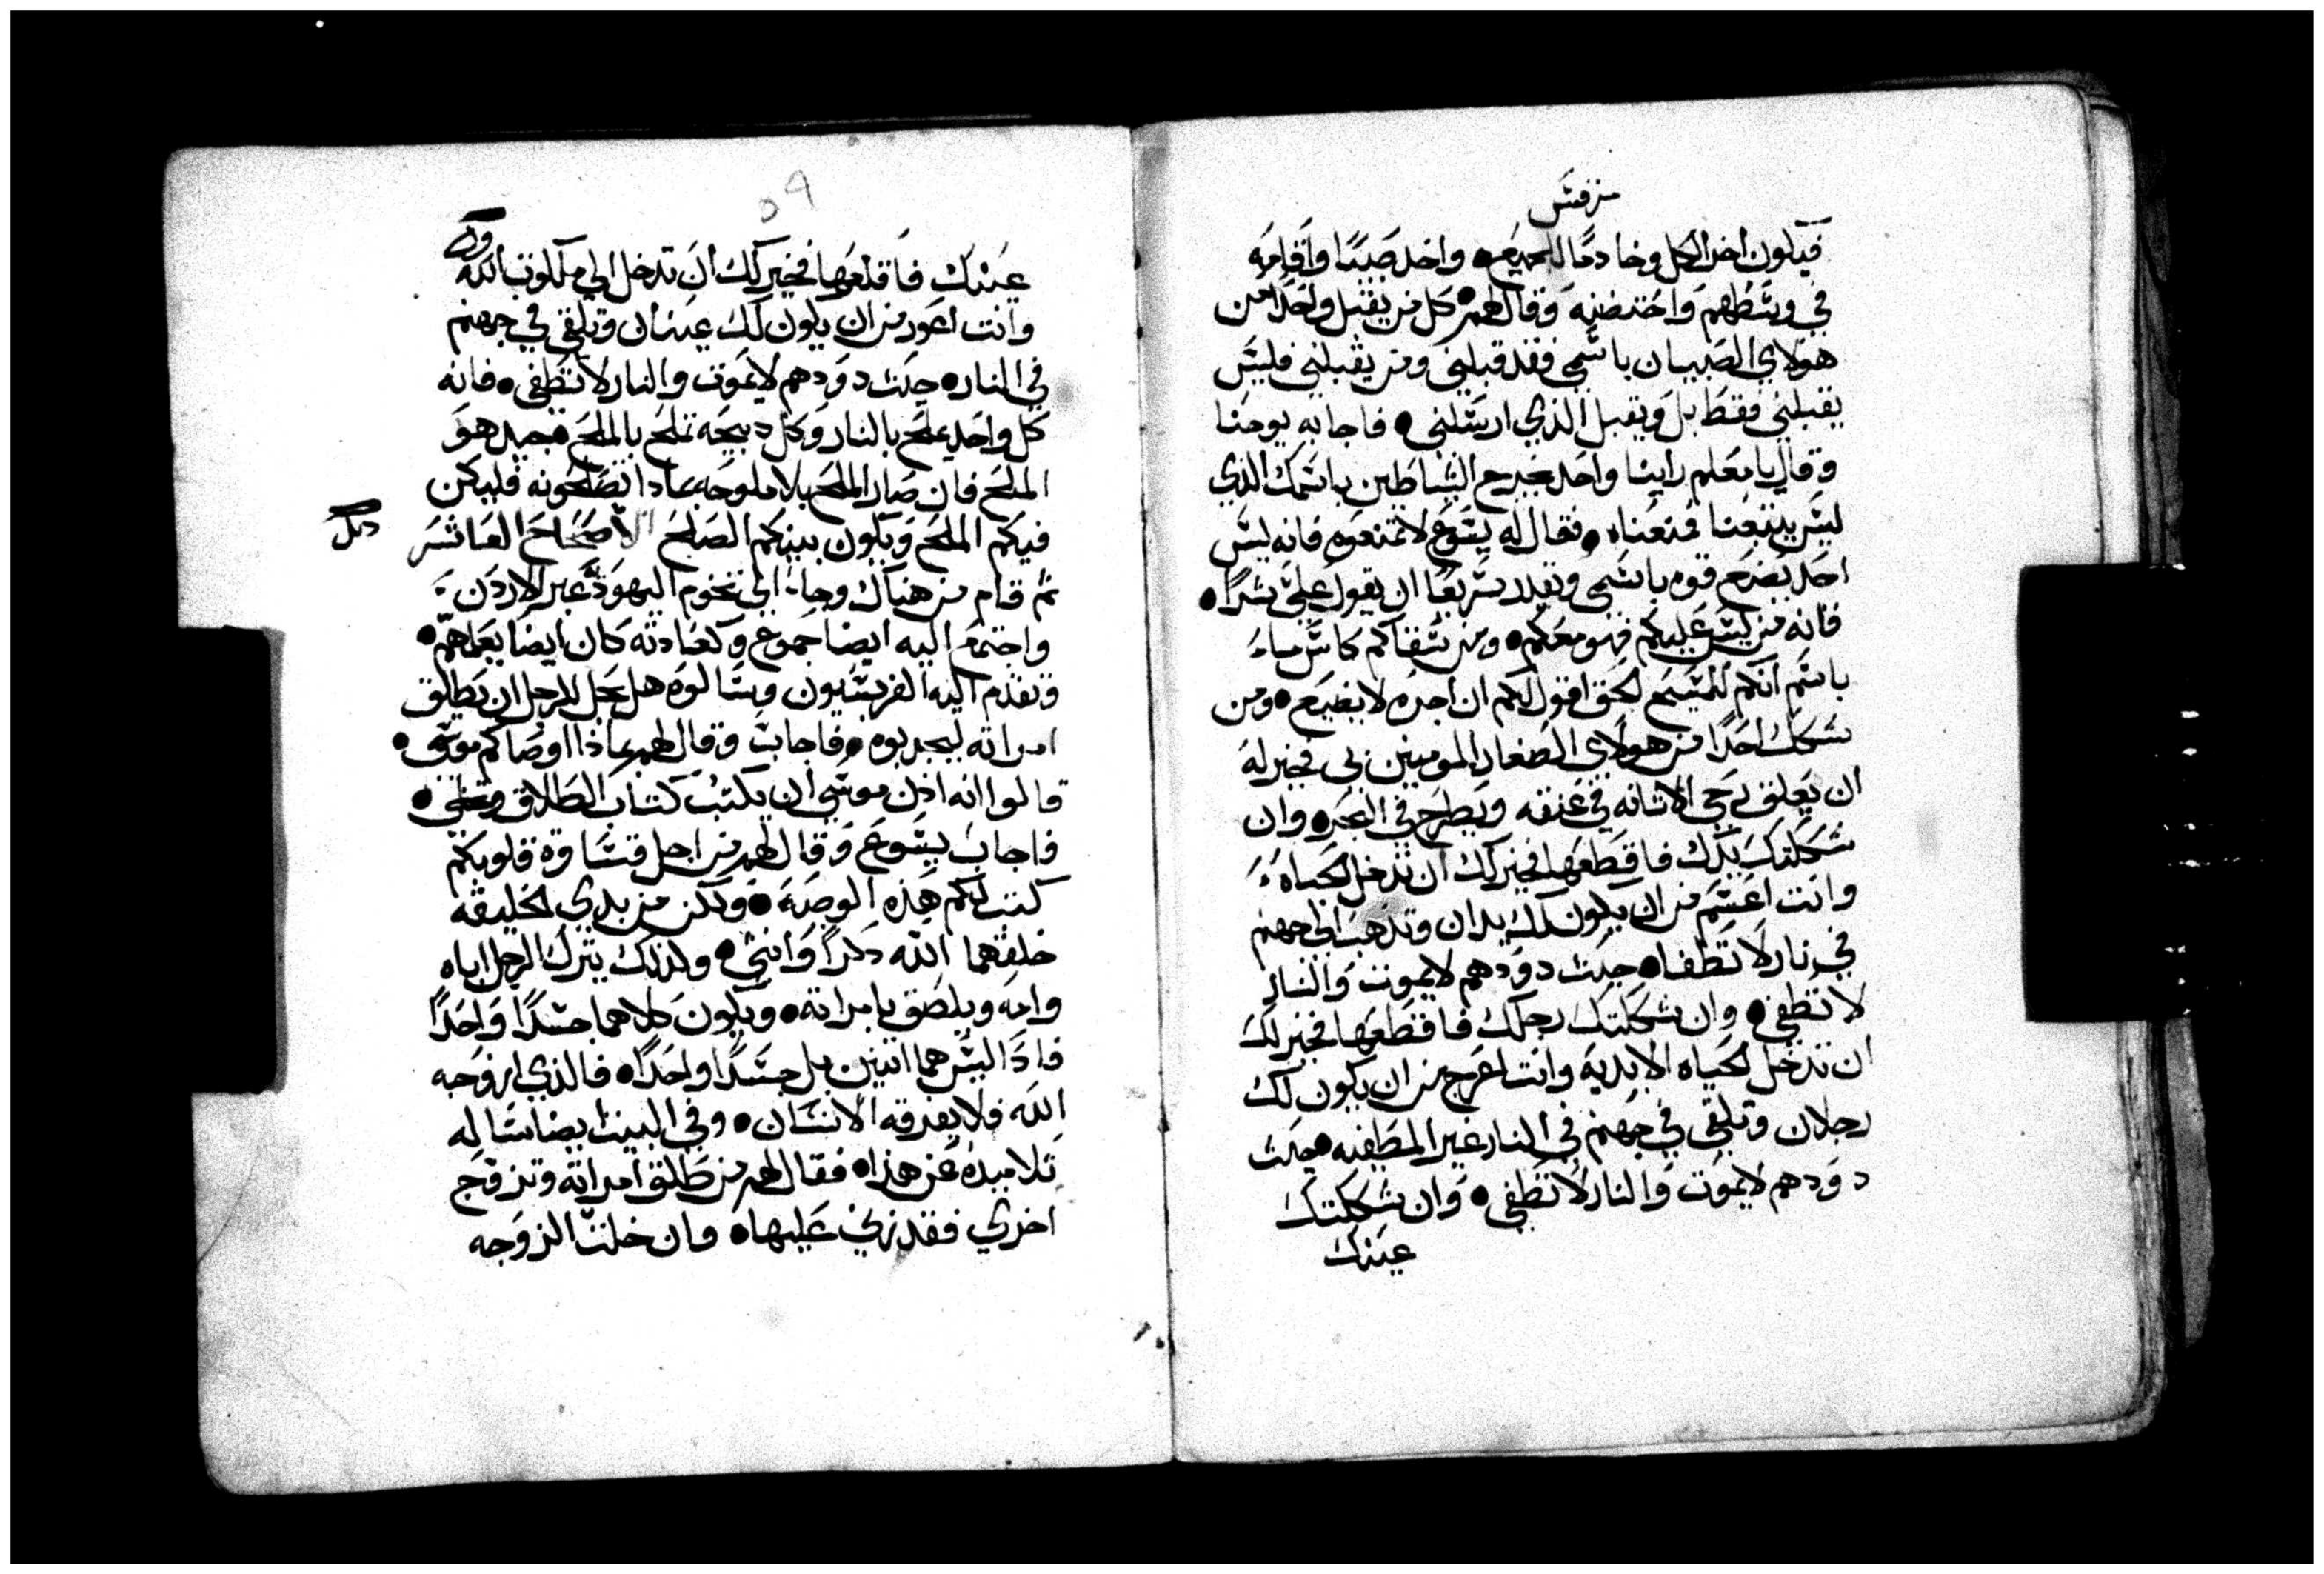 مرقس
فيكون اخر الكل وخادمًا للجميع • واخد صبيًا واقامه
في وسطهم واحتضنه وقال لهم • كل من يقبل واحدًا من
هولاي الصبيان باسمي فقد قبلني ومن يقبلني فليس
يقبلني فقط بل ويقبل الذي ارسلني • فاجابه يوحنا
وقال يا معلم راينا واحد يخرج الشياطين باسمك الذي
ليس يتبعنا فمنعناه • فقال له يسوع لا تمنعوه فانه ليس
احد يصنع قوه باسمي ويقدر سريعًا ان يقول علي شرًا •
فانه من ليس عليكم فهو معكم • ومن سقاكم كاس ماء
باسم انكم للمسيح الحق اقول لكم ان اجره لا يضيع • ومن
شكك احدًا من هولاي الصغار المومنين بي فخير له
ان يعلق رحي الاتانه في عنقه ويطرح في البحر • وان
شككتك يدك فاقطعها فخير لك ان تدخل الحياه
وانت اعسم من ان يكون لك يدان وتذهب الي جهنم
في نار لا تطفا • حيث دودهم لا يموت والنار
لا تطفي • وان شككتك رجلك فاقطعها فخير لك
ان تدخل الحياه الابديه وانت اعرج من ان يكون لك
رجلان وتلقي في جهنم في النار غير المطفيه • حيث
دودهم لا يموت والنار لا تطفي • وان شككتك
عينك
٥٩
عينك فاقلعها فخير لك ان تدخل الي ملكوت الله
وانت اعور من ان يكون لك عينان وتلقي في جهنم
في النار • حيث دودهم لا يموت والنار لا تطفي • فانه
كل واحد يملح بالنار وكل دبيحه تملح بالملح • جيد هو
الملح فان صار الملح بلا ملوحه بمادا تصلحونه فليكن
فيكم الملح ويكون بينكم الصلح الاصحاح العاشر
ثم قام من هناك وجاء الي تخوم اليهوديه عبر الاردن
واجتمع اليه ايضا جموع وكعادته كان ايضا يعلمهم •
وتقدم اليه الفريسيون وسالوه هل يحل للرجل ان يطلق
امراته ليجربوه • فاجاب وقال لهم بماذا اوصاكم موسي •
قالوا انه اذن موسي ان يكتب كتاب الطلاق وتخلي •
فاجاب يسوع وقال لهم من اجل قساوة قلوبكم
كتب لكم هذه الوصيه • ولكن من بدي الخليقه
خلقهما الله دكرًا وانثي • ولذلك يترك الرجل اباه
وامه ويلصق بامراته • ويكون كلاهما جسدًا واحدًا
فاذًا ليس هما اتنين بل جسدًا واحدًا • فالذي ازوجه
الله فلا يفرقه الانسان • وفي البيت ايضا ساله
تلاميده عن هذا • فقال لهم من طلق امراته وتزوج
اخري فقد زني عليها • وان خلت الزوجه